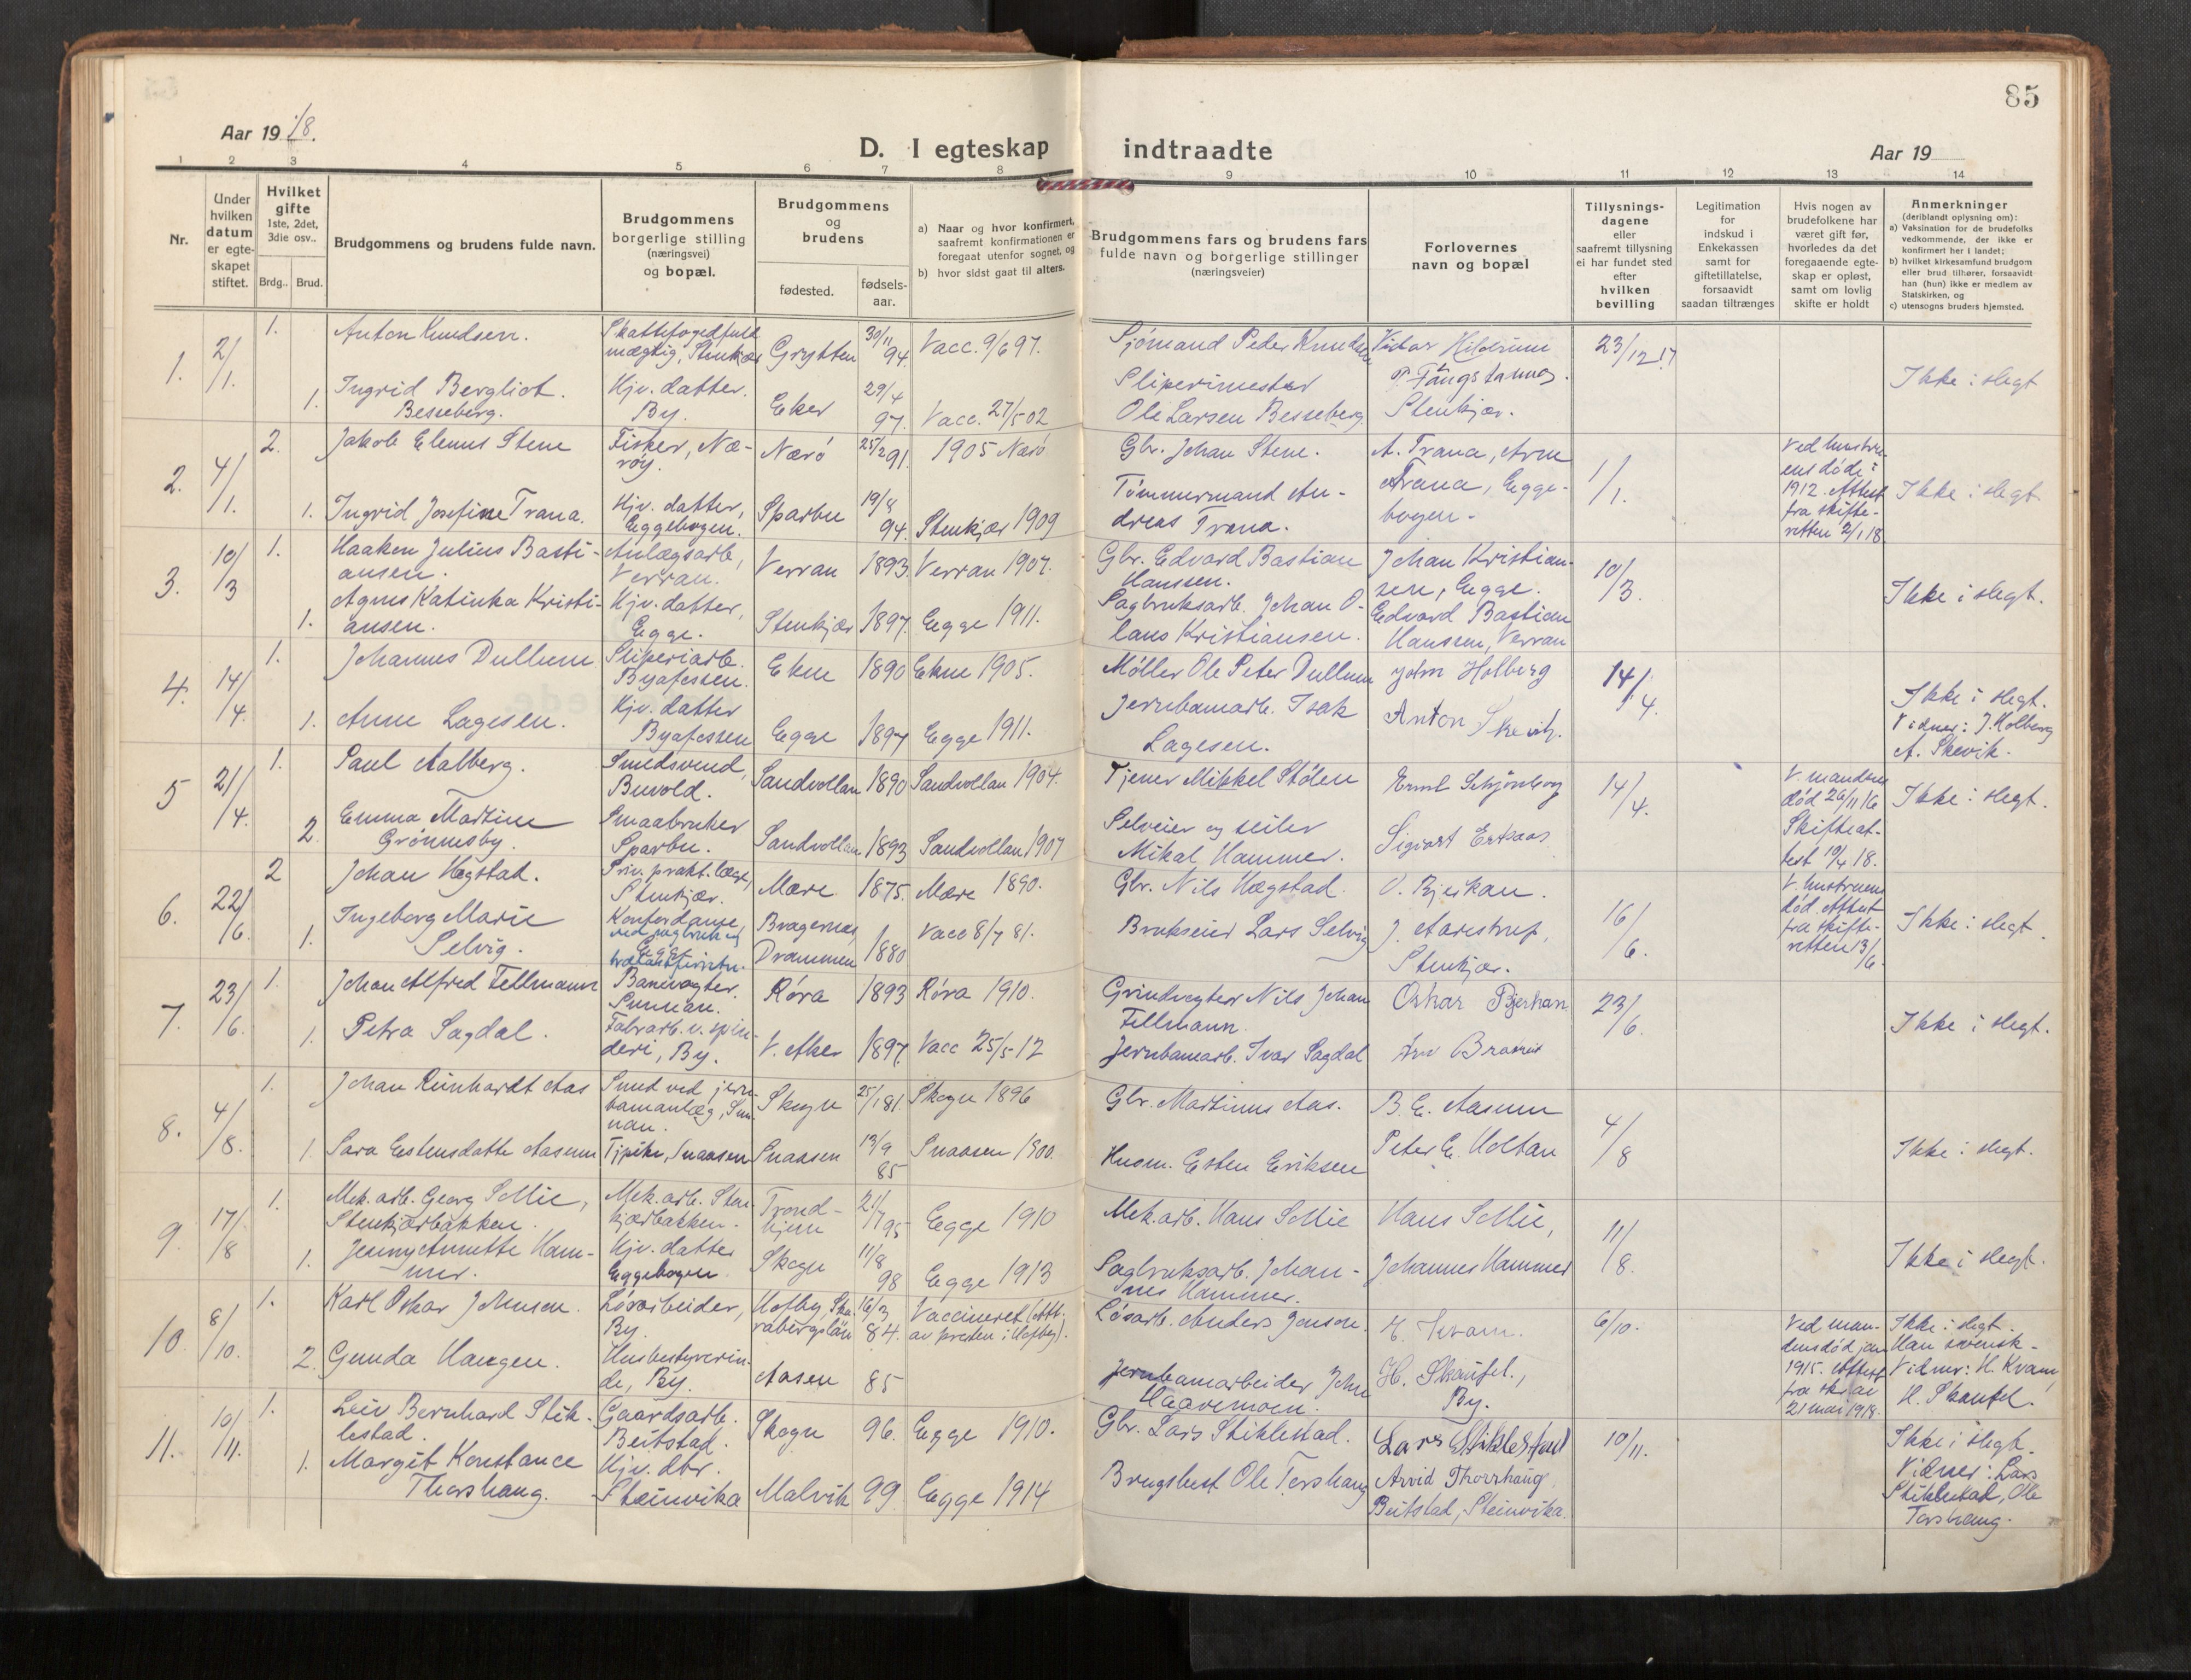 85
Aar 19 18.
D. I egteskap indtraadte
Aar 19
1 2 3 4 5 6 7 8 9 10 11 12 13 14
Nr.
Under hvilken datum er egteskapet stiftet.
Hvilket gifte 1ste, 2det, 3die osv..
Brdg.. Brud.
Brudgommens og brudens fulde navn.
Brudgommens borgerlige stilling (næringsvei) og bopæl.
Brudgommens og brudens
fødested.
fødsels-aar.
a) Naar og hvor konfirmert, saafremt konfirmationen er foregaat utenfor sognet, og
b) hvor sidst gaat til alters.
Brudgommens fars og brudens fars fulde navn og borgerlige stillinger (næringsveier)
Forlovernes navn og bopæl
Tillysnings-dagene eller saafremt tillysning ei har fundet sted efter hvilken bevilling
Legitimation for indskud i Enkekassen samt for giftetillatelse, forsaavidt saadan tiltrænges
Hvis nogen av brudefolkene har været gift før, hvorledes da det foregaaende egteskap er opløst, samt om lovlig skifte er holdt
Anmerkninger (deriblandt oplysning om):
a) Vaksination for de brudefolks vedkommende, der ikke er konfirmert her i landet;
b) hvilket kirkesamfund brudgom eller brud tilhører, forsaavidt han (hun) ikke er medlem av Statskirken, og
c) utensogns bruders hjemsted.
1. 2/1. 1. Anton Knudsen. Skattefogedfuldmægtig, Stenkjær Grytten 30/11 94. Vacc. 9/6 97. Sjømand Peder Knudsen Vidar Hildrum 23/12 17
1. Ingrid Bergliot Besseberg. Hjv. datter. By. Eker 29/4 97. Vacc. 27/5 02 Sliperimester Ole Larsen Besseberg Stenkjær. Ikke i slegt
2. 4/1. 2. Jakob Elenus Stene Fisker, Nærøy. Nærø 25/2 91. 1905 Nærø Gbr. Johan Stene. A. Trana, Arne Trana, Eggebogen. 1/1. Ved hustruens død i 1912. Attest fra skifteretten 2/1 18
1. Ingrid Josefine Trana. Hjv. datter, Eggebogen. Sparbu 19/8 94. Stenkjær 1909 Tømmermand Andreas Trana. Ikke i slegt.
3. 10/3 1. Haakon Julius Bastiansen. Anlægsarb., Verran. Verran 1893. Verran 1907. Gbr. Edvard Bastian Hanssen. Johan Kristiansen, Egge. 10/3.
1. Agnes Katinka Kristiansen. Hjv. datter, Egge. Stenkjær 1897. Egge 1911. Sagbruksarb. Johan Olaus Kristiansen. Edvard Bastian Hanssen, Verran Ikke i slegt.
4. 14/4. 1. Johannes Dullum Sliperiarb. Byafossen. Ekne 1890 Ekne 1905. Møller Ole Peter Dullum John Holberg 14/4.
1. Anne Lagesen. Hjv. datter Byafossen Egge 1897 Egge 1911. Jernbanearb. Isak Lagesen. Anton Skevik. Ikke i slegt. Vidner: J. Holberg A. Skevik.
5 21/4. 1. Paul Aalberg. Smedsvend, Buvold. Sandvollan 1890 Sandvollan 1904. Tjener Mikkel Stølen 14/4. V. mandens død 26/11 16 Skifteattest 10/4 18.
2 Emma Martine Grønnesby. Smaabruker Sparbu. Sandvollan 1893 Sandvollan 1907 Selveier og seiler Mikal Hammer. Sigvart Ertsaas Ikke i slegt.
6. 22/6. 2 Johan Hegstad. Priv. prakt. læge, Stenkjær. Mære 1875. Mære 1890. Gbr. Nils Hegstad. O. Bjerkan. 16/6. V. hustruens død. Attest fra skifteretten 13/6.
1. Ingeborg Marie Selvig. Kontordame ved sagbruk og Egge Bragernes, Drammen 1880 Vacc 8/7 81. Brukseier Lars Selvig J. Aarestrup, Stenkjær. Ikke i slegt.
7. 23/6. 1. Johan Alfred Fellmann Banevogter. Sunnan. Røra 1893 Røra 1910. Grindvogter Nils Johan Fellmann. Oskar Bjerkan 23/6.
1. Petra Sagdal. Fabrarb. v. spinderi, By. V. Aker 1897. Vacc 25/5-12 Jernbanearb. Ivar Sagdal Ikke i slegt.
8. 4/8. 1. Johan Reinhardt Aas Smed ved jernbaneanlæg, Sunnan. Skogn 25/1 81. Skogn 1896 Gbr. Martinus Aas. B. E. Aasum 4/8
1. Sara Estensdatte Aasum Tjpike, Snaasen Snaasen 13/9 85 Snaasen 1900. Husm. Esten Eriksen Peter E. Holtan Ikke i slegt.
9. 17/8 1. Mek. arb. Georg Sollie, Stenkjærbakken. Mek. arb. Stenkjærbakken. Trondhjem 21/7 95 Egge 1910 Mek. arb. Hans Sollie Hans Sollie, 11/8.
1. Jenny Annette Hammer. Hjv. datter Eggebogen Skogn 11/8 98 Egge 1913 Sagbruksarb. Johannes Hammer. Johannes Hammer Ikke i slegt.
10. 8/10. 1. Karl Oskar Johnson. Løsarbeider, By. Hofby, Skarabergslän 16/3 84. Vaccineret (Att. av presten i Hofby). Løsarb. Anders Jonson. Kvam. 6/10. Ved mandens død jan 1915. Attest fra 21 mai 1918.
2. Gunda Haugen. Husbestyrerinde, By. Aasen 85 Jernbanearbeider John H. Skaufel., By. Ikke i slegt. Han svensk. Vidner: H. Kvam, H. Skaufel.
11. 10/11. 1. Leiv Bernhard Stiklestad. Gaardsarb. Beitstad. Skogn 96. Egge 1910. Gbr. Lars Stiklestad. Lars Stiklestad 10/11.
1. Margit Konstance Thorshaug. Hjv. dtr. Steinvika Malvik 99. Egge 1914 Brugsbest Ole Torshaug Arvid Thorshaug Beitstad, Steinvika. Ikke i slegt. Vidner: Lars Stiklestad, Ole Torshaug.